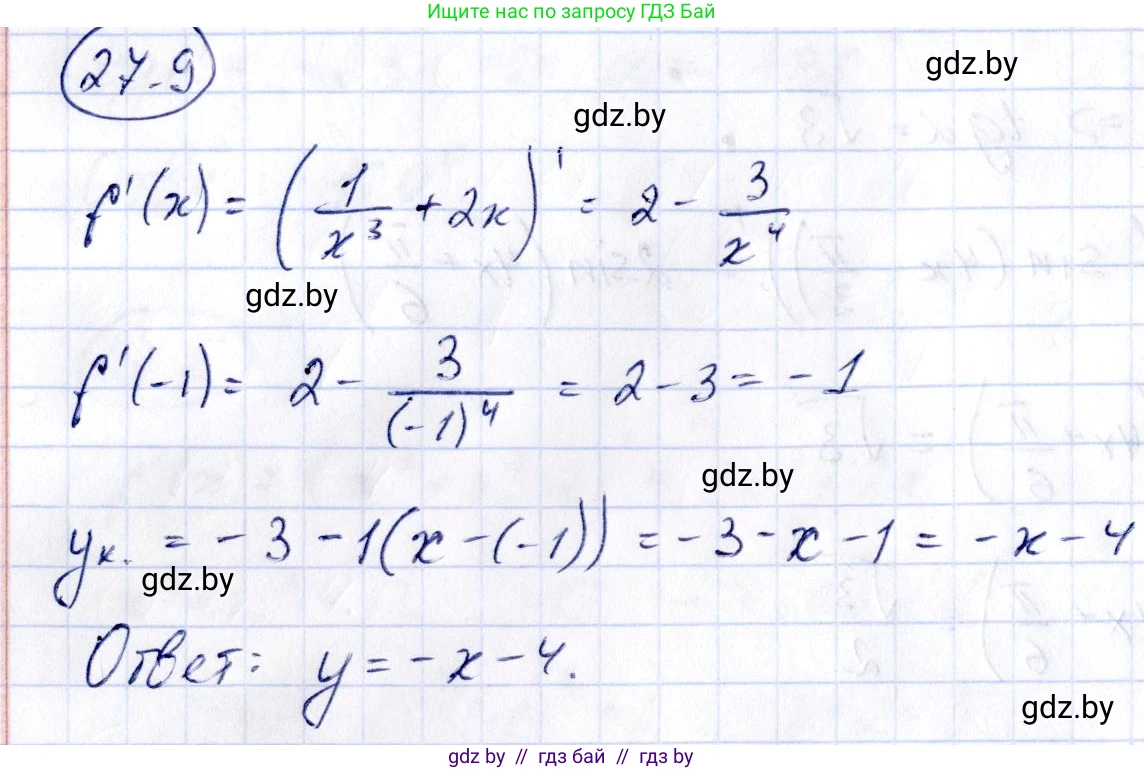 Ищите нас по запросу ГДЗ Бай
27.9
gdz.by
gdz.by
f'(x) = (1/x³ + 2x)' = 2 - 3/x⁴
gdz.by
f'(-1) = 2 - 3/(-1)⁴ = 2 - 3 = -1
gdz.by
yк. = -3 - 1(x - (-1)) = -3 - x - 1 = -x - 4
gdz.by
Ответ: y = -x - 4.
gdz.by
gdz.by // гдз бай // гдз by